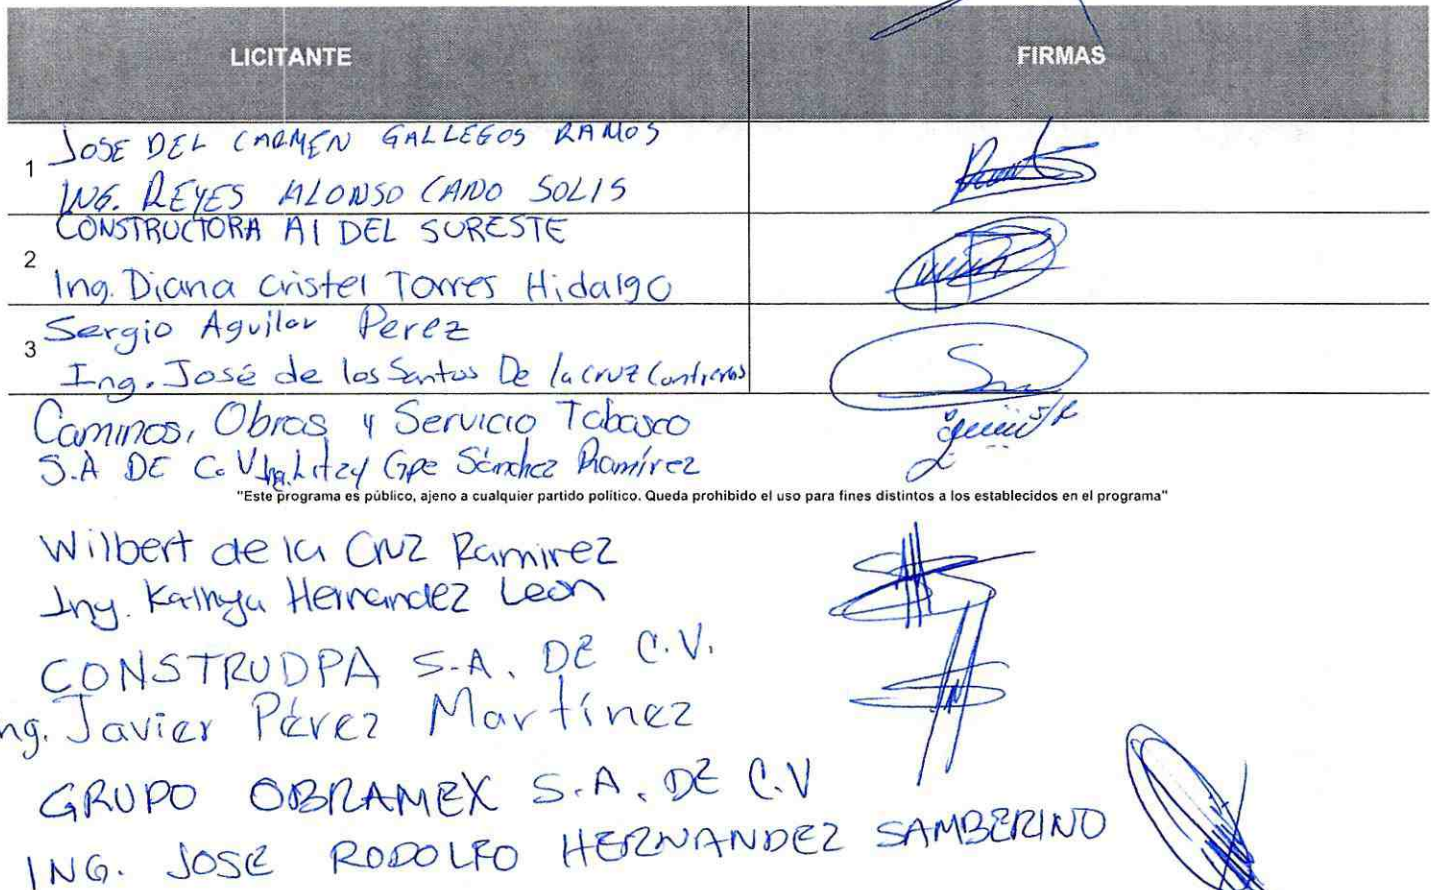 LICITANTE FIRMAS
1 JOSE DEL CARMEN GALLEGOS RAMOS
ING. REYES ALONSO CANO SOLIS
CONSTRUCTORA A1 DEL SURESTE
2
Ing. Diana Cristel Torres Hidalgo
Sergio Aguilar Perez
3
Ing. José de los Santos De la Cruz Contreras
Caminos, Obras y Servicio Tabasco
S.A DE C.V Ing. Litzy Gpe Sánchez Ramírez
"Este programa es público, ajeno a cualquier partido político. Queda prohibido el uso para fines distintos a los establecidos en el programa"
Wilbert de la Cruz Ramirez
Ing. Kathya Hernandez Leon
CONSTRUDPA S.A. DE C.V.
ng. Javier Pérez Martínez
GRUPO OBRAMEX S.A. DE C.V
ING. JOSE RODOLFO HERNANDEZ SAMBERINO